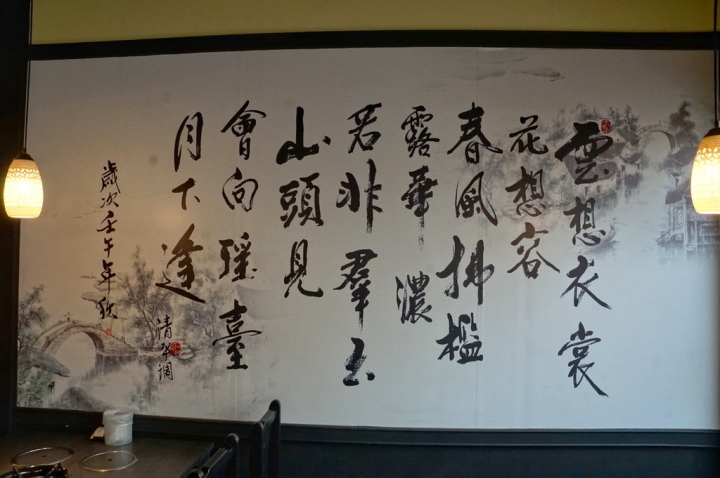 雲想衣裳
花想容
春風拂檻
露華濃
若非羣玉
山頭見
會向瑤臺
月下逢
清平調
歲次壬午年秋